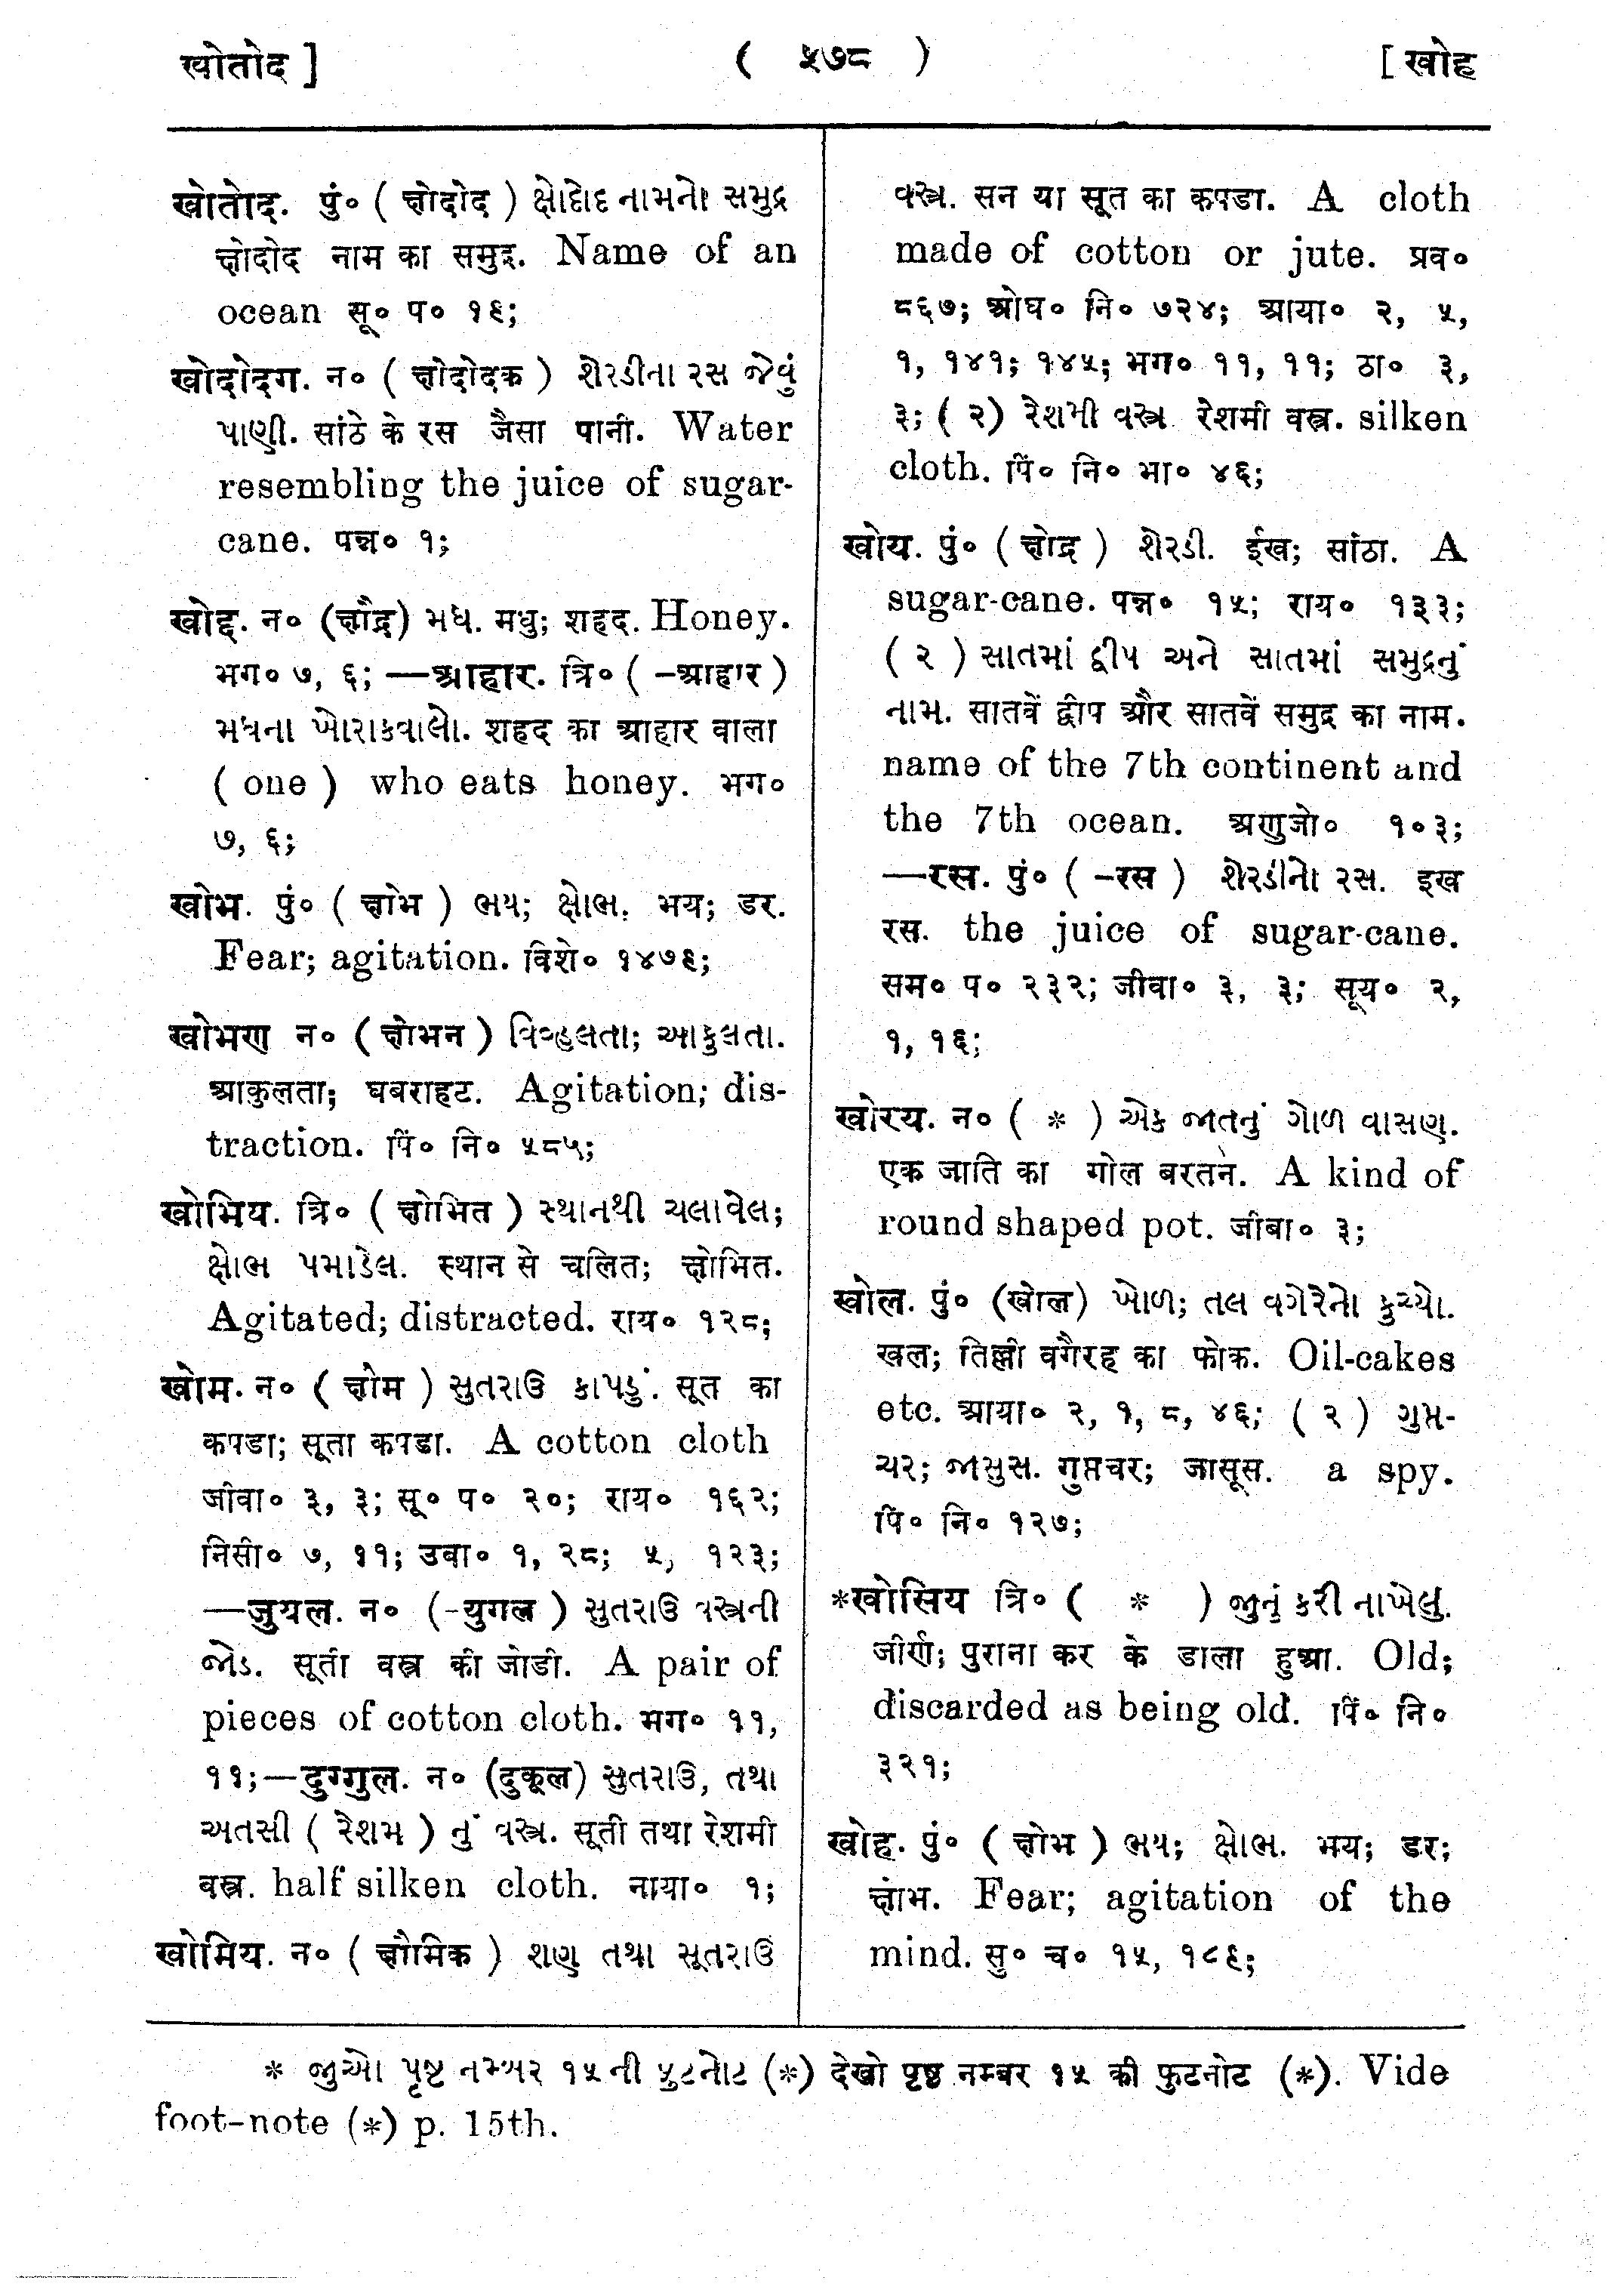 खोतोद ]
( ५७८ )
[ खोह
खोतोद. पुं० ( क्षोदोद ) ક્ષોદોદ નામનો સમુદ્ર
क्षोदोद नाम का समुद्र. Name of an
ocean सू० प० १९;
खोदोदग. न० ( क्षोदोदक ) શેરડીના રસ જેવું
પાણી. सांठे के रस जैसा पानी. Water
resembling the juice of sugar-
cane. पन्न० १;
खोद्द. न० (क्षौद्र) મધ. मधु; शहद. Honey.
भग० ७, ६; —आहार. त्रि० ( -आहार )
મધના ખોરાકવાલો. शहद का आहार वाला
( one ) who eats honey. भग०
७, ६;
खोभ. पुं० ( क्षोभ ) ભય; ક્ષોભ. भय; डर.
Fear; agitation. विशे० १४७९;
खोभण न० ( क्षोभन ) વિવ્હલતા; આકુલતા.
आकुलता; घबराहट. Agitation; dis-
traction. पिं० नि० ५८५;
खोभिय. त्रि० ( क्षोभित ) સ્થાનથી ચલાવેલ;
ક્ષોભ પમાડેલ. स्थान से चलित; क्षोभित.
Agitated; distracted. राय० १२८;
खोम. न० ( क्षोम ) સુતરાઉ કાપડું. सूत का
कपडा; सूता कपडा. A cotton cloth
जीवा० ३, ३; सू० प० २०; राय० १६२;
निसी० ७, ११; उवा० १, २८; ५, १२३;
—जुयल. न० (-युगल ) સુતરાઉ વસ્ત્રની
જોડ. सूती वस्त्र की जोडी. A pair of
pieces of cotton cloth. भग० ११,
११;—दुग्गुल. न० (दुकूल) સુતરાઉ, તથા
અતસી ( રેશમ ) નું વસ્ત્ર. सूती तथा रेशमी
वस्त्र. half silken cloth. नाया० १;
खोमिय. न० ( क्षौमिक ) શણ તથા સૂતરાઉ
વસ્ત્ર. सन या सूत का कपडा. A cloth
made of cotton or jute. प्रव०
८६७; ओघ० नि० ७२४; आया० २, ५,
१, १४१; १४५; भग० ११, ११; ठा० ३,
३; ( २ ) રેશમી વસ્ત્ર रेशमी वस्त्र. silken
cloth. पिं० नि० भा० ४६;
खोय. पुं० ( क्षोद्र ) શેરડી. ईख; सांठा. A
sugar-cane. पन्न० १५; राय० १३३;
( २ ) સાતમાં દ્વીપ અને સાતમાં સમુદ્રનું
નામ. सातवें द्वीप और सातवें समुद्र का नाम.
name of the 7th continent and
the 7th ocean. अणुजो० १०३;
—रस. पुं० ( -रस ) શેરડીનો રસ. इख
रस. the juice of sugar-cane.
सम० प० २३२; जीवा० ३, ३; सूय० २,
१, १६;
खोरय. न० ( * ) એક જાતનું ગોળ વાસણ.
एक जाति का गोल बरतन. A kind of
round shaped pot. जीवा० ३;
खोल. पुं० (खोल) ખોળ; તલ વગેરેનો કુચ્ચો.
खल; तिल्ली वगैरह का फोक. Oil-cakes
etc. आया० २, १, ८, ४६; ( २ ) ગુપ્ત-
ચર; જાસુસ. गुप्तचर; जासूस. a spy.
पिं० नि० १२७;
*खोसिय त्रि० ( * ) જુનું કરી નાખેલું.
जीर्ण; पुराना कर के डाला हुआ. Old;
discarded as being old. पिं० नि०
३२१;
खोह. पुं० ( क्षोभ ) ભય; ક્ષોભ. भय; डर;
क्षोभ. Fear; agitation of the
mind. सु० च० १५, १८९;
* જુઓ પૃષ્ટ નમ્બર ૧૫ ની ફુટનોટ (*) देखो पृष्ठ नम्बर १५ की फुटनोट (*). Vide
foot-note (*) p. 15th.